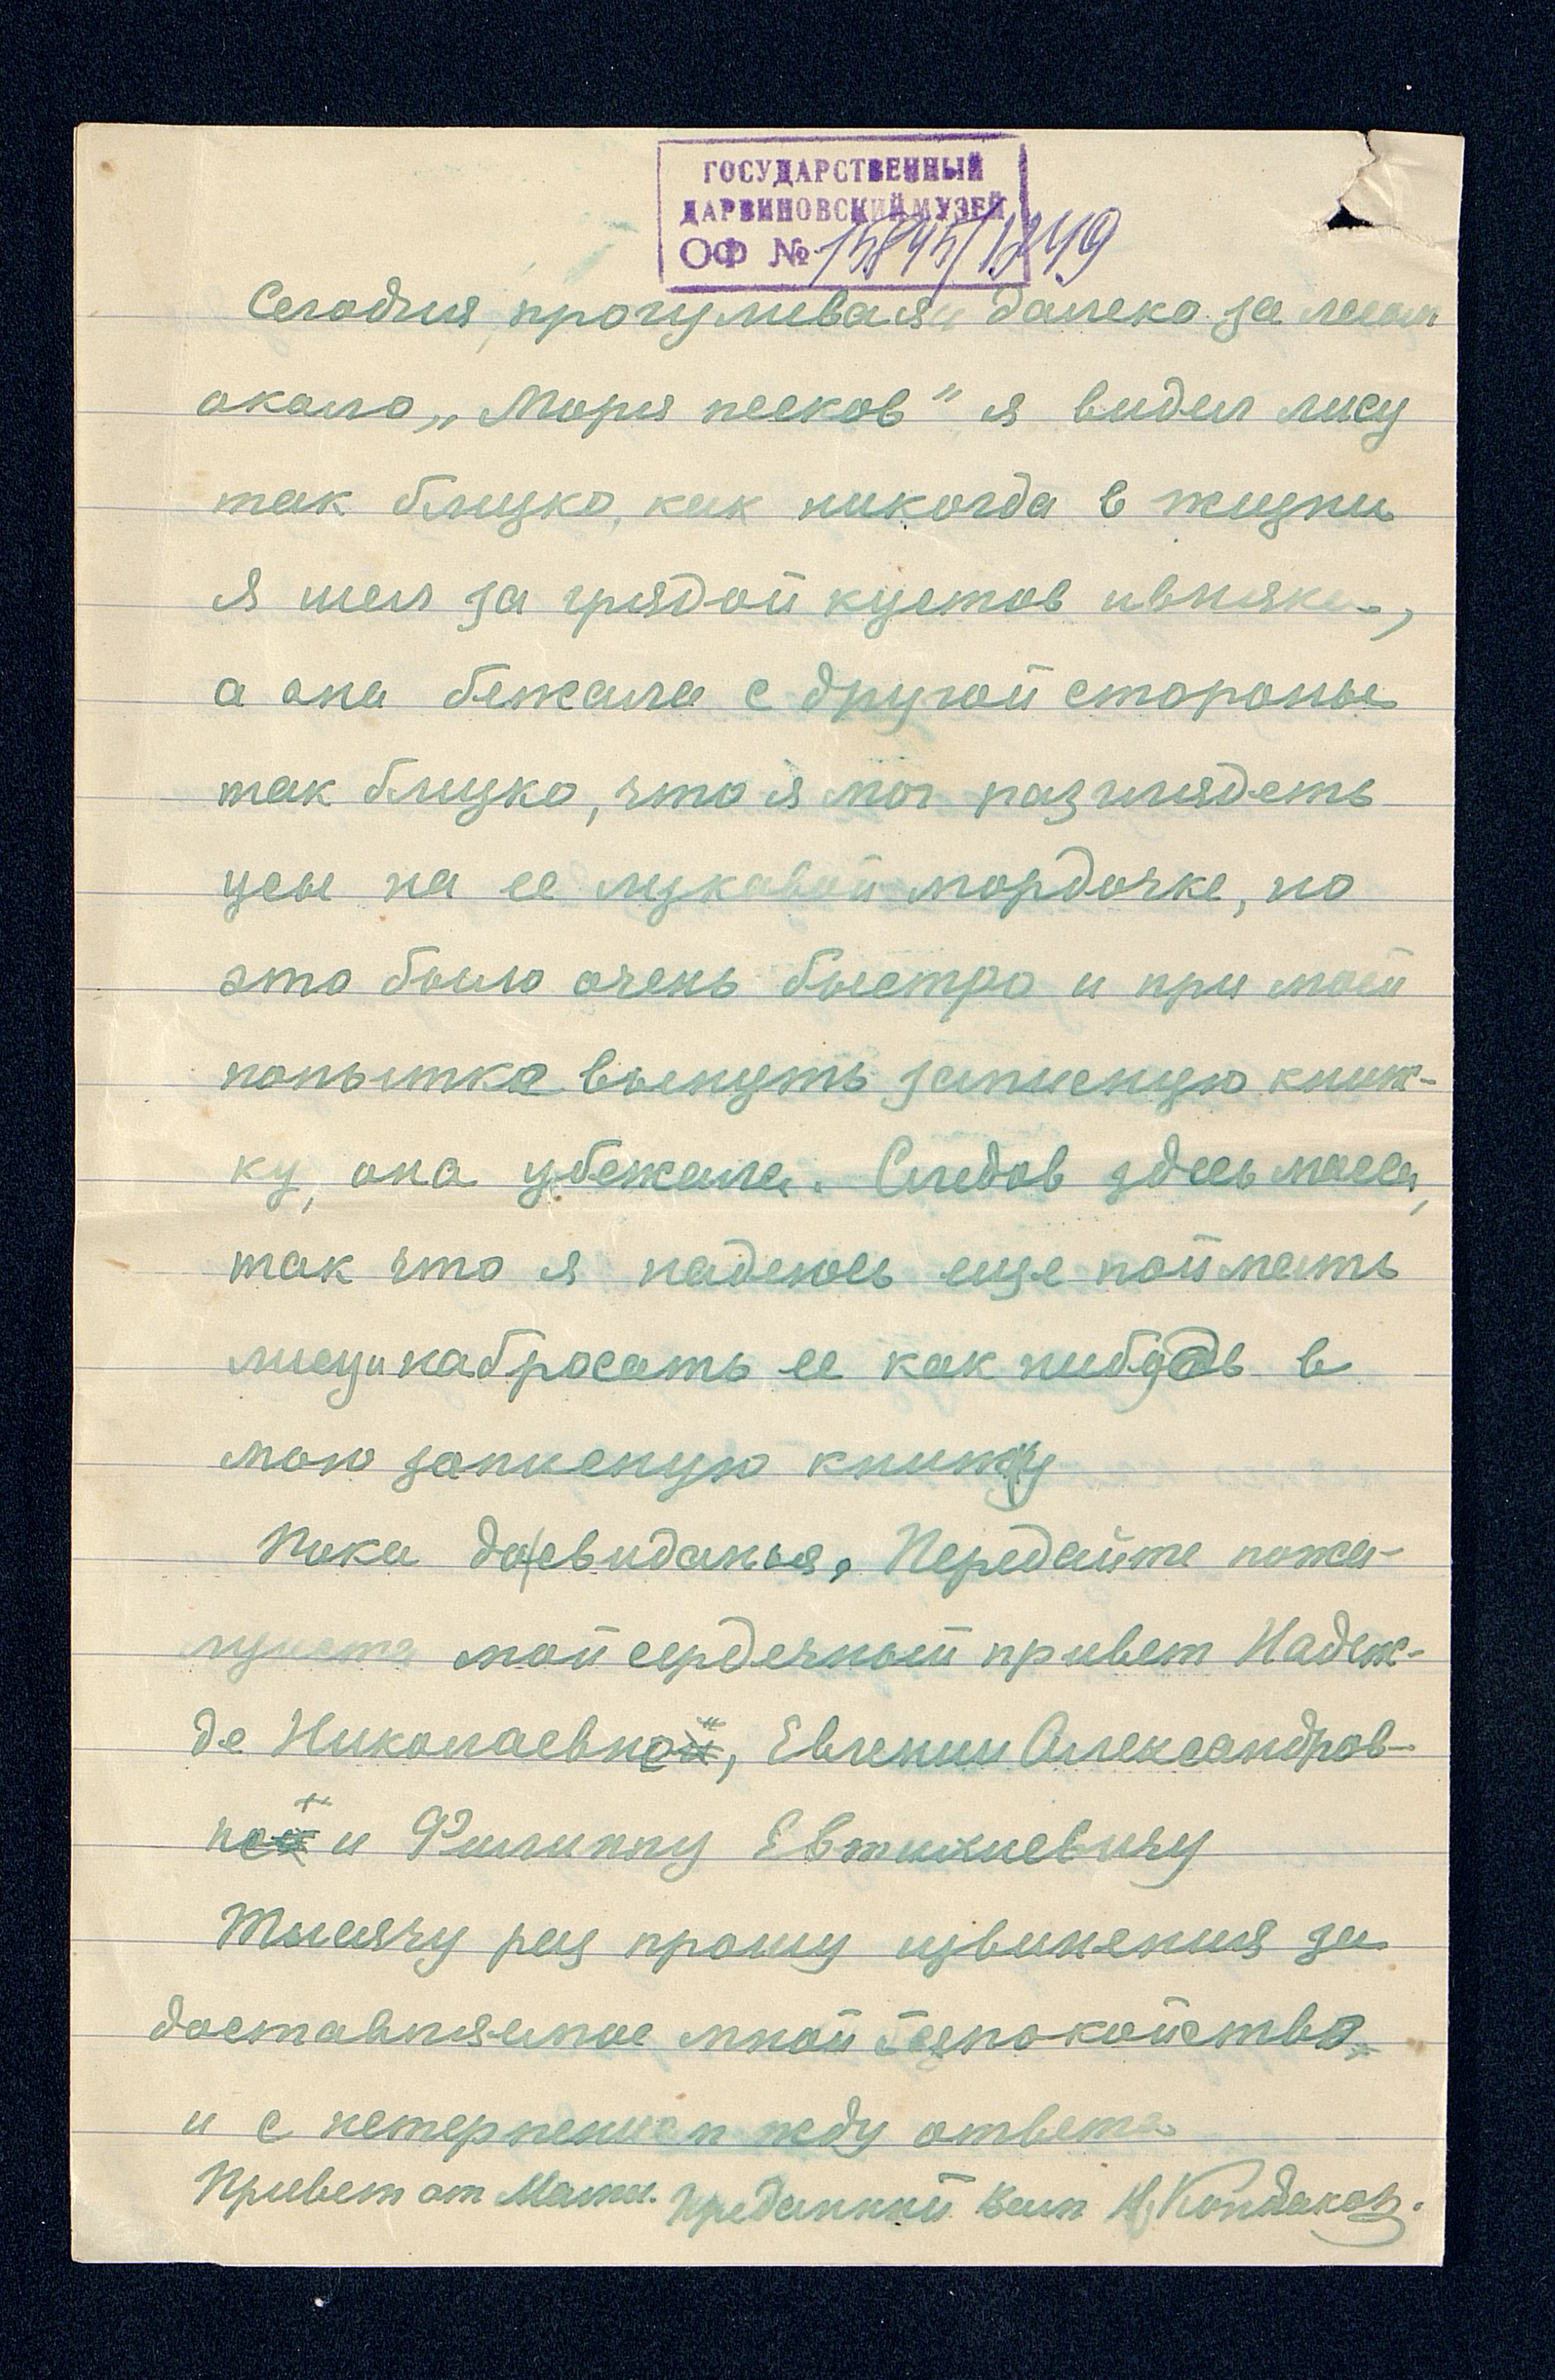 ГОСУДАРСТВЕННЫЙ
ДАРВИНОВСКИЙ МУЗЕЙ
ОФ № 15845/1249
Сегодня, прогуливаясь далеко за лесом
около „Моря песков" я видел лису
так близко, как никогда в жизни
Я шел за грядой кустов ивняка,
а она бежала с другой стороны
так близко, что я мог разглядеть
усы на ее лукавой мордочке, но
это было очень быстро и при моей
попытке вынуть записную книж-
ку, она убежала. Следов здесь масса,
так что я надеюсь еще поймать
лису и набросать ее как нибудь в
мою записную книжку
Пока до свиданья. Передайте пожа-
луйста мой сердечный привет Надеж-
де Николаевной, Евгении Александров-
ной и Филиппу Евтихиевичу
Тысячу раз прошу извинения за
доставляемое мной безпокойство,
и с нетерпением жду ответа
Привет от Мати. Преданный Вам Н. Кондаков.